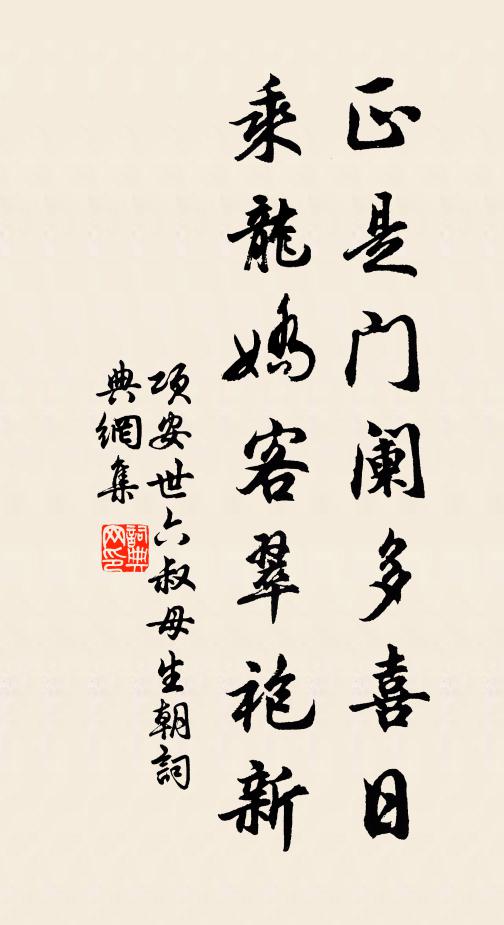 正是門闌多喜日
乘龍嬌客翠袍新
項安世六叔母生朝詞
典網集
詞典
网印